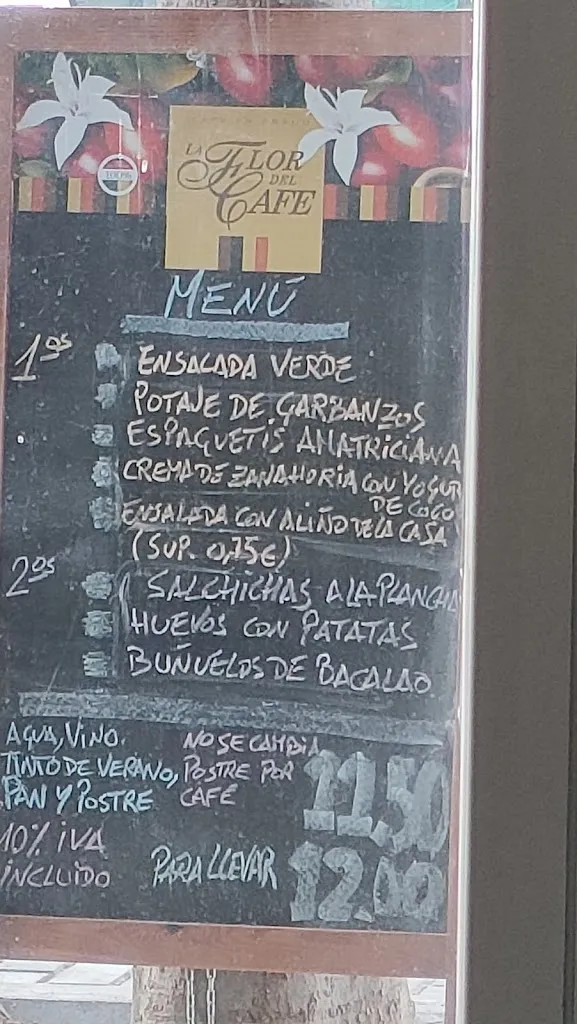 100%
LA FLOR
DEL
CAFE
MENÚ
1ºs
ENSALADA VERDE
POTAJE DE GARBANZOS
ESPAGUETIS AMATRICIANA
CREMA DE ZANAHORIA CON YOGUR
DE COCO
ENSALADA CON ALIÑO DE LA CASA
(SUP. 0,75€)
2ºs
SALCHICHAS A LA PLANCHA
HUEVOS CON PATATAS
BUÑUELOS DE BACALAO
AGUA, VINO.
TINTO DE VERANO,
PAN Y POSTRE
NO SE CAMBIA
POSTRE POR
CAFÉ
11,50
10% IVA
INCLUIDO
PARA LLEVAR
12,00